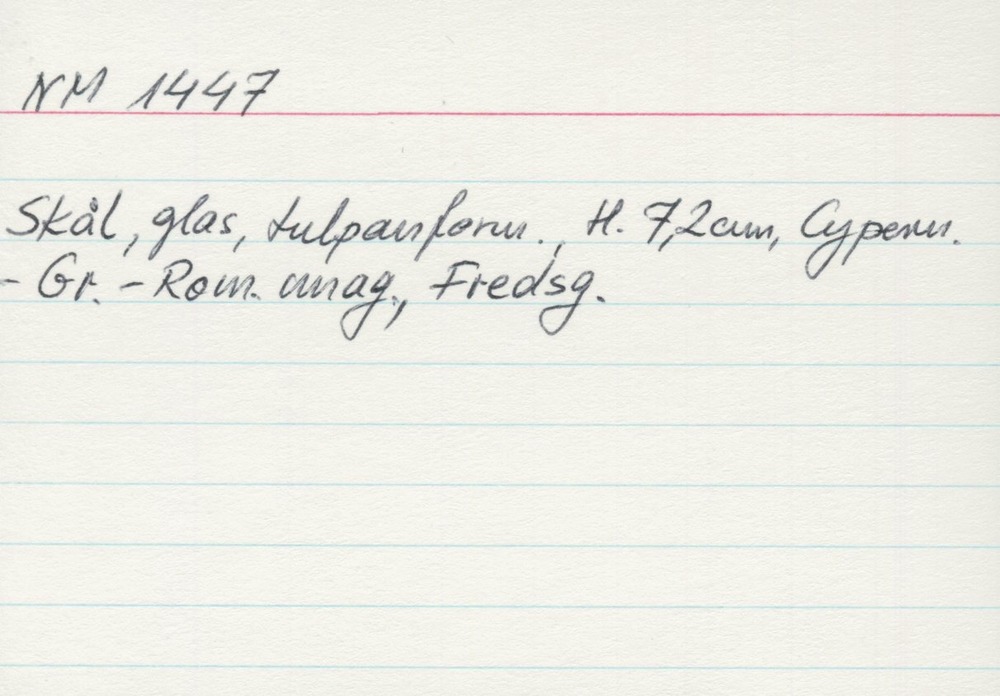 NM 1447
Skål, glas, tulpanform., H. 7,2cm, Cypern.
- Gr. - Rom. mag., Fredsg.